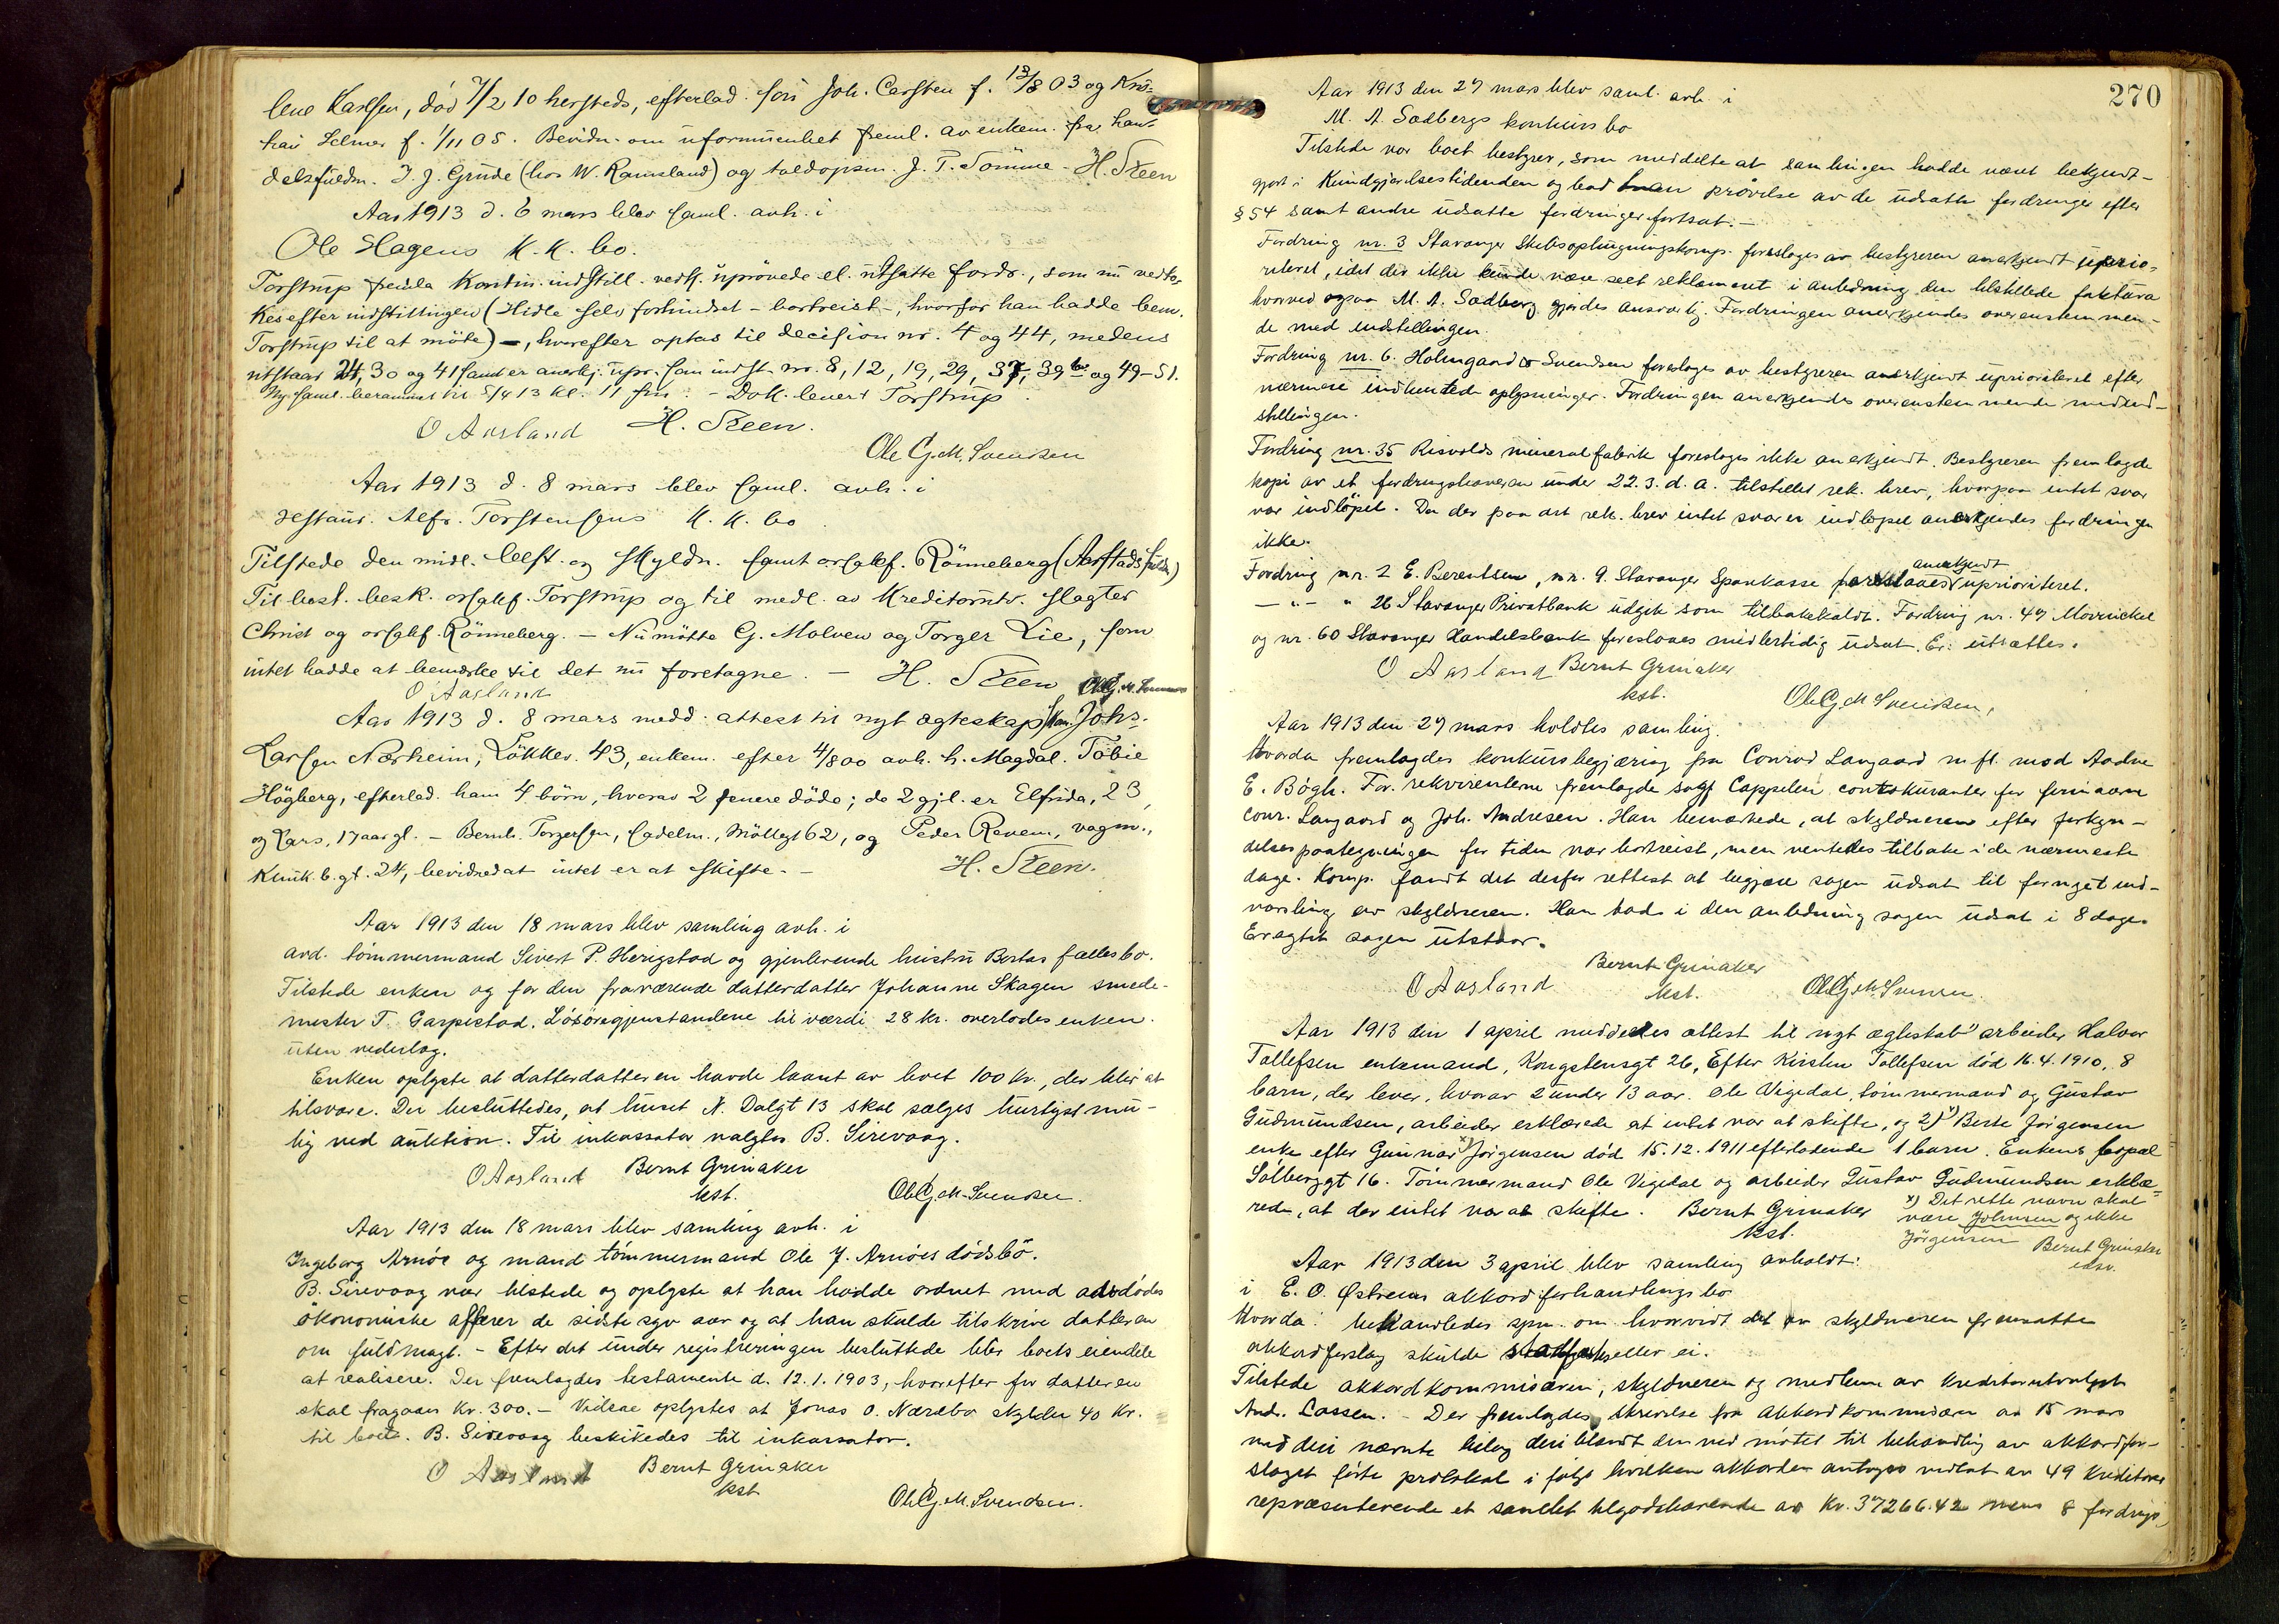 lene Karlsen, död 7/2 10 hersteds, efterlad. søn Joh. Carsten f. 13/8 03 og Kris-
han Selmer f. 1/11 05. Bevidn. om uformuenhet freml. av enkem. fra han-
delsfuldm. J. J. Grude (hos W. Ramsland) og toldopsm. J. T. Sömme - H. Steen
Aar 1913 d. 6 mars blev saml. avh. i
Ole Hagens K.K. bo.
Torstrup fremla Kontin. indstill. vedk. uprövede el. utsatte fordr., som nu vedto-
kes efter indstillingen (Hidle selv forhindret - bortreist -, hvorfor han hadde bem.
Torstrup til at möte) -, hvorefter optas til decision nr. 4 og 44, medens
utstaar 24, 30 og 41 samt er anerkj. upr. som indst. nr. 8, 12, 19, 29, 37, 39 b og 49-51.
Ny saml. berammet til 5/4 13 kl. 11 fm. - Dok. levert Torstrup.
O Aasland H. Steen.
Ole G. M. Svendsen
Aar 1913 d. 8 mars blev saml. avh. i
restaur. Alfr. Torstensens K. K. bo
Tilstede den midl. best. og skyldn. samt orsakf. Rönneberg (Aarstads fuldm)
Til best. besk. orsakf. Torstrup og til medl. av Kreditorutv. slagter
Christ og orsakf. Rönneberg. - Nu mötte G. Molven og Torger Lie, som
intet hadde at bemerke til det nu foretagne. - H. Steen Ole G. M. Svendsen
O Aasland
Aar 1913 d. 8 mars medd. attest til nyt ægteskap Johs.
Larsen Nærheim, Lökkev. 43, enkem. efter 4/8 00 avh. h. Magdal. Tobie
Högberg, efterlad. ham 4 börn, hvorav 2 senere döde; de 2 gjl. er Elfrida, 23,
og Lars, 17 aar gl. - Bernh. Torgersen, sadelm., Möllegt 62, og Peder Revem, vagm.,
Kunk. b. gt. 24, bevidned at intet er at skifte. - H. Steen.
Aar 1913 den 18 mars blev samling avh. i
avd. tömmermand Sivert P. Herigstad og gjenlevende hustru Bertas fællesbo.
Tilstede enken og for den fraværende datterdatter Johanne Skagen smede-
mester T. Garpestad. Lösöregjenstandene til værdi 28 kr. overlodes enken
uten vederlag.
Enken oplyste at datterdatteren havde laant av boet 100 kr., der blir at
tilsvare. Der besluttedes, at huset N. Dalgt 13 skal sælges hurtigst mu-
lig ved auktion. Til inkassator valgtes B. Sirevaag.
O Aasland Bernt Grinaker
kst. Ole G. M. Svendsen.
Aar 1913 den 18 mars blev samling avh. i
Ingeborg Arnöe og mand tömmermand Ole J. Arnöes dödsbo.
B. Sirevaag var tilstede og oplyste at han hadde ordnet med avdödes
ökonomiske affærer de sidste syv aar og at han skulde tilskrive datteren
om fuldmagt. - Efter det under registreringen besluttede blir boets eiendele
at realisere. Der fremlagdes testamente d. 12.1.1903, hvorefter for datteren
skal fragaaes kr. 300.- Vidare oplystes at Jonas O. Nærebø skylder 40 kr.
til boet. B. Sirevaag beskikedes til inkassator.
O Aasland Bernt Grinaker
kst Ole G. M. Svendsen.
270
Aar 1913 den 27 mars blev saml. avh. i
M. A. Sædbergs konkurs bo
Tilstede var boet bestyrer, som meddelte at samlingen hadde været bekjendt-
gjort i Kundgjørelsestidenden og bad prövelse av de udsatte fordringer efter
§ 54 samt andre udsatte fordringer fortsat. -
Fordring nr. 3 Stavanger Skibsophugningskomp. foreslages av bestyreren anerkjendt uprio-
riteret, idet der ikke kunde være seet reklameret i anledning den tilstillede faktura
hvorved ogsaa M. A. Sædberg gjordes ansvarlig. Fordringen anerkjendes overenstemmen-
de med indstellingen.
Fordring nr. 6. Holmgaard & Svendsen foreslages av bestyreren anerkjendt uprioriteret efter
nærmere indhentede oplysninger. Fordringen anerkjendes overenstemmende med ind-
stellingen.
Fordring nr. 35 Risvolds mineralfabrik foreslages ikke anerkjendt. Bestyreren fremlagde
kopi av et fordringshaveren under 22.3. d.a. tilstillet rek. brev, hvorpaa intet svar
var indlöpet. Da der paa det rek. brev intet svar er indlöpet anerkjendes fordringen
ikke.
Fordring nr. 2 E. Berentsen, nr. 9. Stavanger Sparekasse foreslaaes anerkjendt uprioriteret.
- " - " 26 Stavanger Privatbank udgik som tilbakekaldt. Fordring nr. 47 Mowinckel
og nr. 60 Stavanger Handelsbank foreslaaes midlertidig udsat. Er: utsættes.
O Aasland Bernt Grinaker
kst. Ole G. M Svendsen,
Aar 1913 den 27 mars holdtes samling.
Hvorda fremlagdes konkursbegjæring fra Conrad Langaard m. fl. mod Aadne
E. Bögh. For rekvirenterne fremlagde sagf Cappelen contokuranter for firmaerne
Conr. Langaard og Joh. Andresen. Han bemærkede, at skyldneren efter forkyn-
delsespaategningen for tiden var bortreist, men ventedes tilbake i de nærmeste
dage. Komp. fandt det derfor rettest at begjære sagen udsat til fornyet ind-
varsling av skyldneren. Han bad i den anledning sagen udsat i 8 dage.
Eragtet sagen utstaar.
O Aasland Bernt Grinaker
kst. Ole G. M. Svendsen.
Aar 1913 den 1 april meddeltes attest til nyt ægteskab 1) arbeider Halvor
Tollefsen enkemand, Kongstensgt 26, Efter Kirsten Tollefsen död 16.4.1910, 8
barn, der lever, hvorav 2 under 13 aar. Ole Vigedal, tömmermand og Gustav
Gudmundsen, arbeider erklærede at intet var at skifte, og 2) Berte Jörgensen
enke efter Gunnar x) Jörgensen död 15.12.1911 efterladende 1 barn. Enkens bopæl
Sölberggt 16. Tömmermand Ole Vigedal og arbeider Gustav Gudmundsen erklæ-
rede, at der intet var at skifte. Bernt Grinaker
kst.
x) Det rette navn skal
være Johnsen og ikke
Jörgensen Bernt Grinaker
edsv.
Aar 1913 den 3 april blev samling avholdt:
i E. O. Østreims akkordforhandlings bo
Hvorda: behandledes spm. om hvorvidt det av skyldneren fremsatte
akkordforslag skulde stadfæstes eller ei.
Tilstede akkordkommisæren, skyldneren og medlem av kreditorutvalget
And. Lassen. - Der fremlagdes skrivelse fra akkordkommisæren av 15 mars
med deri nævnte bilag deriblandt den ved mötet til behandling av akkordfor-
slaget förte protokol i fölge hvilken akkorden antages vedtat av 49 kreditorer
repræsenterende et samlet tilgodehavende av Kr. 37266.42 mens 8 fordrings